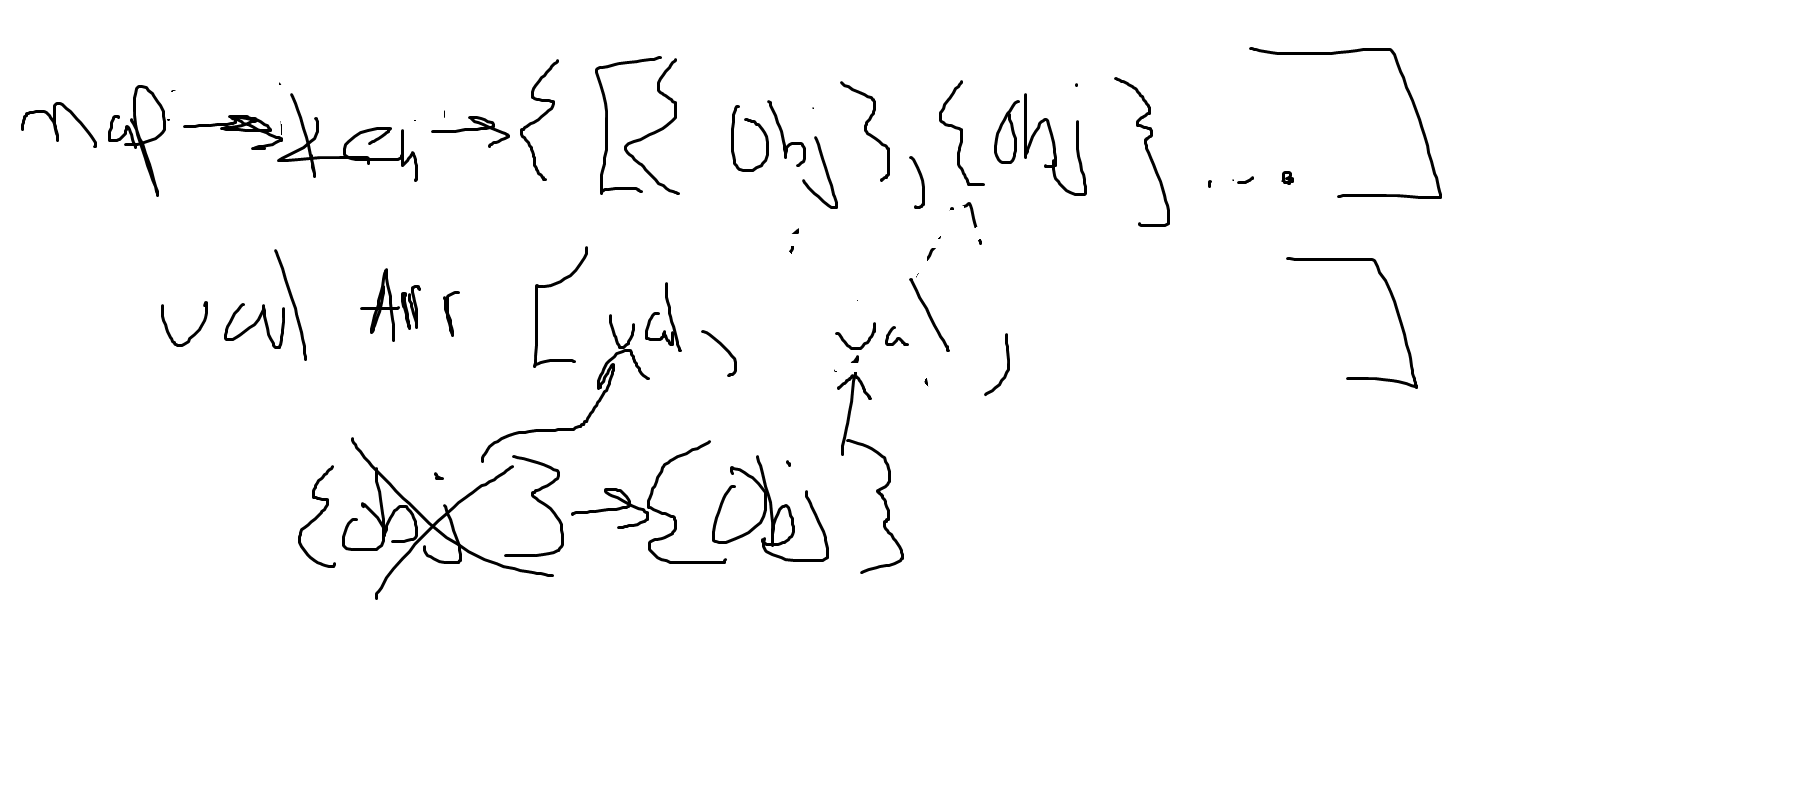 map → → { [ { Obj } , { Obj } ... ]
val Arr [ val , val , ]
{ obj } → { Obj }